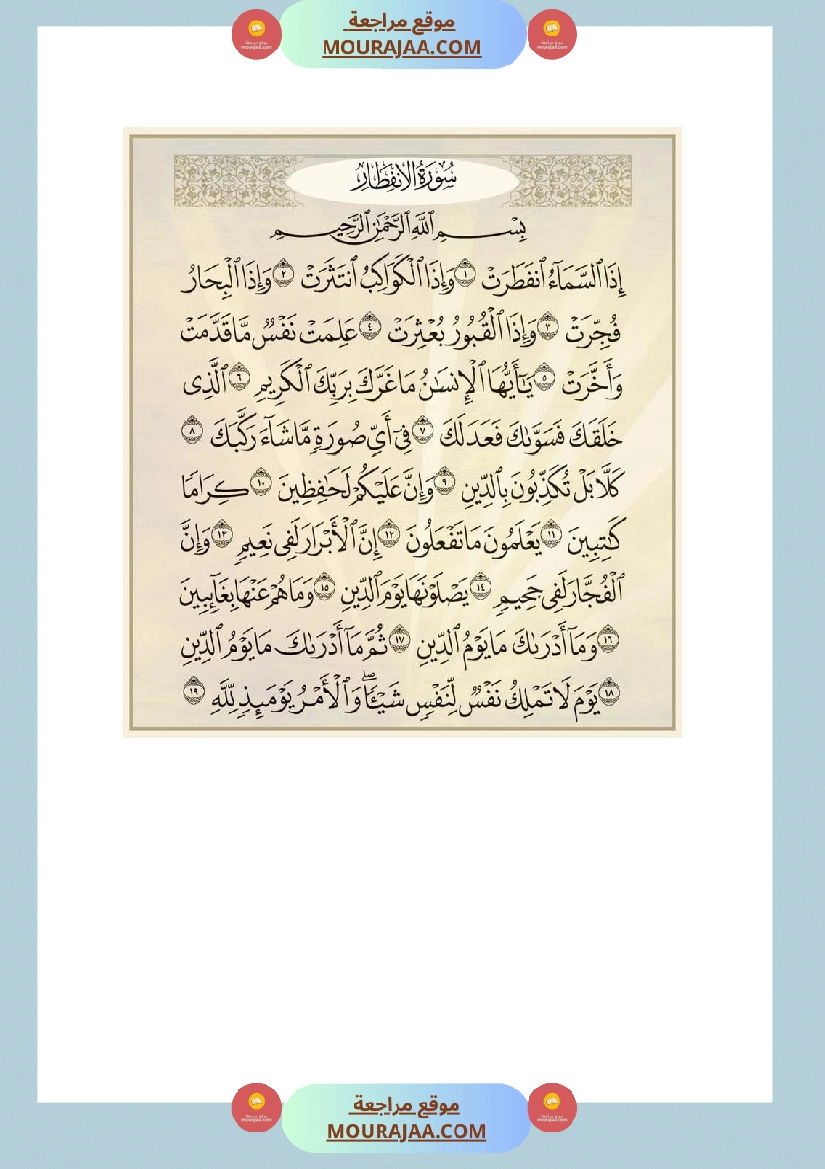 موقع مراجعة
MOURAJAA.COM
سُورَةُ الانفِطَار
بِسْمِ ٱللَّهِ ٱلرَّحْمَٰنِ ٱلرَّحِيمِ
إِذَا ٱلسَّمَآءُ ٱنفَطَرَتْ ١ وَإِذَا ٱلْكَوَاكِبُ ٱنتَثَرَتْ ٢ وَإِذَا ٱلْبِحَارُ
فُجِّرَتْ ٣ وَإِذَا ٱلْقُبُورُ بُعْثِرَتْ ٤ عَلِمَتْ نَفْسٌ مَّا قَدَّمَتْ
وَأَخَّرَتْ ٥ يَٰٓأَيُّهَا ٱلْإِنسَٰنُ مَا غَرَّكَ بِرَبِّكَ ٱلْكَرِيمِ ٦ ٱلَّذِى
خَلَقَكَ فَسَوَّىٰكَ فَعَدَلَكَ ٧ فِىٓ أَىِّ صُورَةٍ مَّا شَآءَ رَكَّبَكَ ٨
كَلَّا بَلْ تُكَذِّبُونَ بِٱلدِّينِ ٩ وَإِنَّ عَلَيْكُمْ لَحَٰفِظِينَ ١٠ كِرَامًا
كَٰتِبِينَ ١١ يَعْلَمُونَ مَا تَفْعَلُونَ ١٢ إِنَّ ٱلْأَبْرَارَ لَفِى نَعِيمٍ ١٣ وَإِنَّ
ٱلْفُجَّارَ لَفِى جَحِيمٍ ١٤ يَصْلَوْنَهَا يَوْمَ ٱلدِّينِ ١٥ وَمَا هُمْ عَنْهَا بِغَآئِبِينَ
١٦ وَمَآ أَدْرَىٰكَ مَا يَوْمُ ٱلدِّينِ ١٧ ثُمَّ مَآ أَدْرَىٰكَ مَا يَوْمُ ٱلدِّينِ
١٨ يَوْمَ لَا تَمْلِكُ نَفْسٌ لِّنَفْسٍ شَيْـًٔا ۖ وَٱلْأَمْرُ يَوْمَئِذٍ لِّلَّهِ ١٩
موقع مراجعة
MOURAJAA.COM